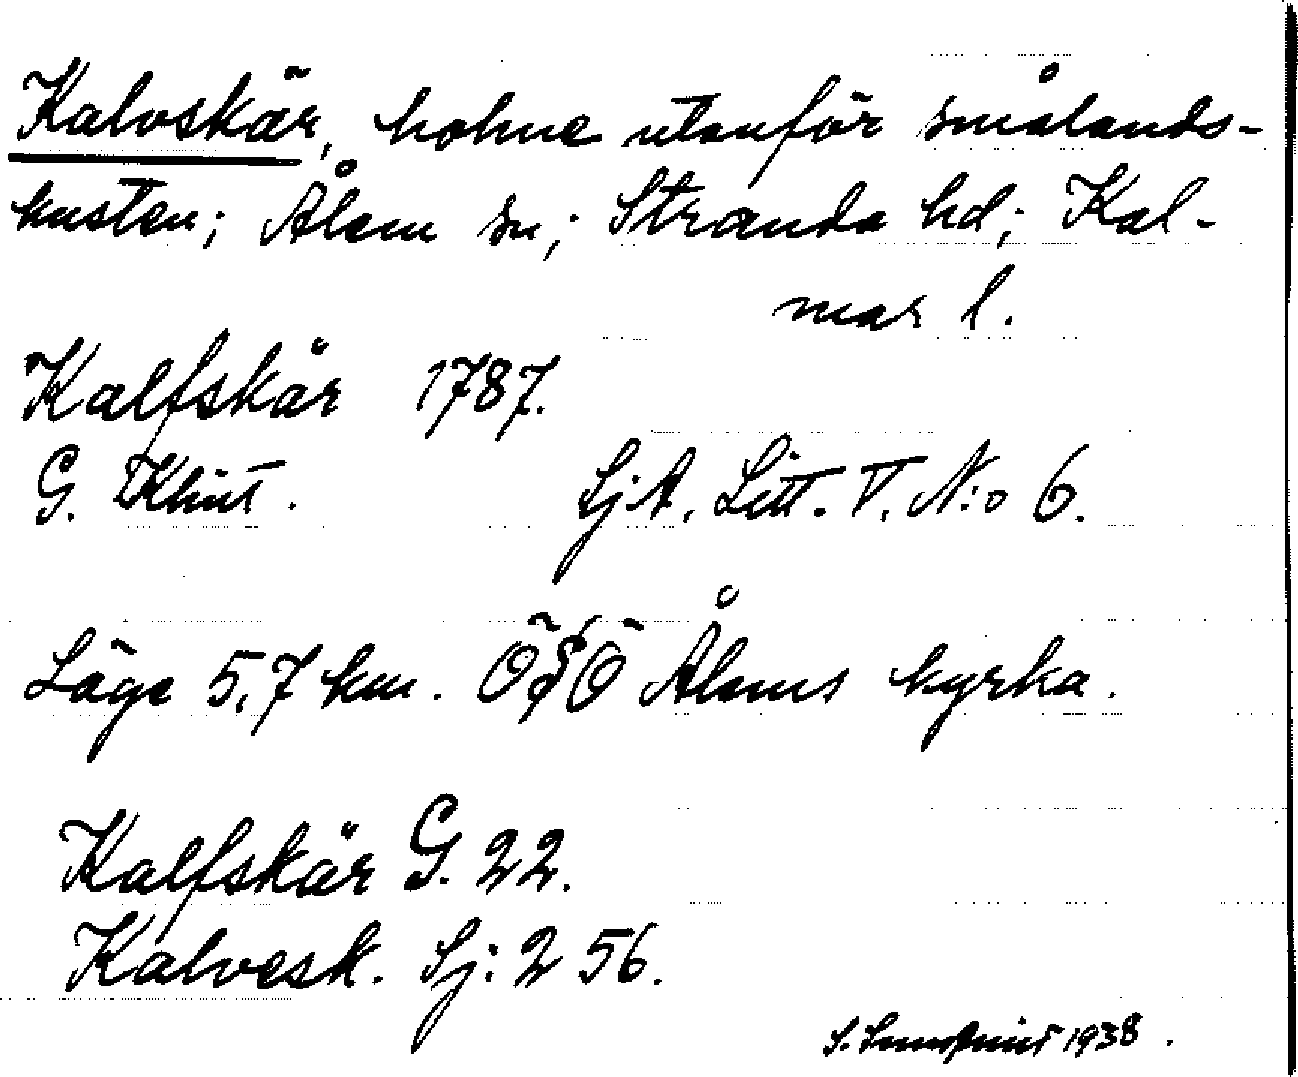 Kalvskär, holme utanför smålands-
kusten; Ålem sn; Stranda hd; Kal-
mar l.
Kalfskär 1787.
G. Klint. Sj.A. Litt. V. N:o 6.
Läge 5,7 km. ÖSÖ Ålems kyrka.
Kalfskär G. 22.
Kalvesk. Sj: 2 56.
S. 1938.